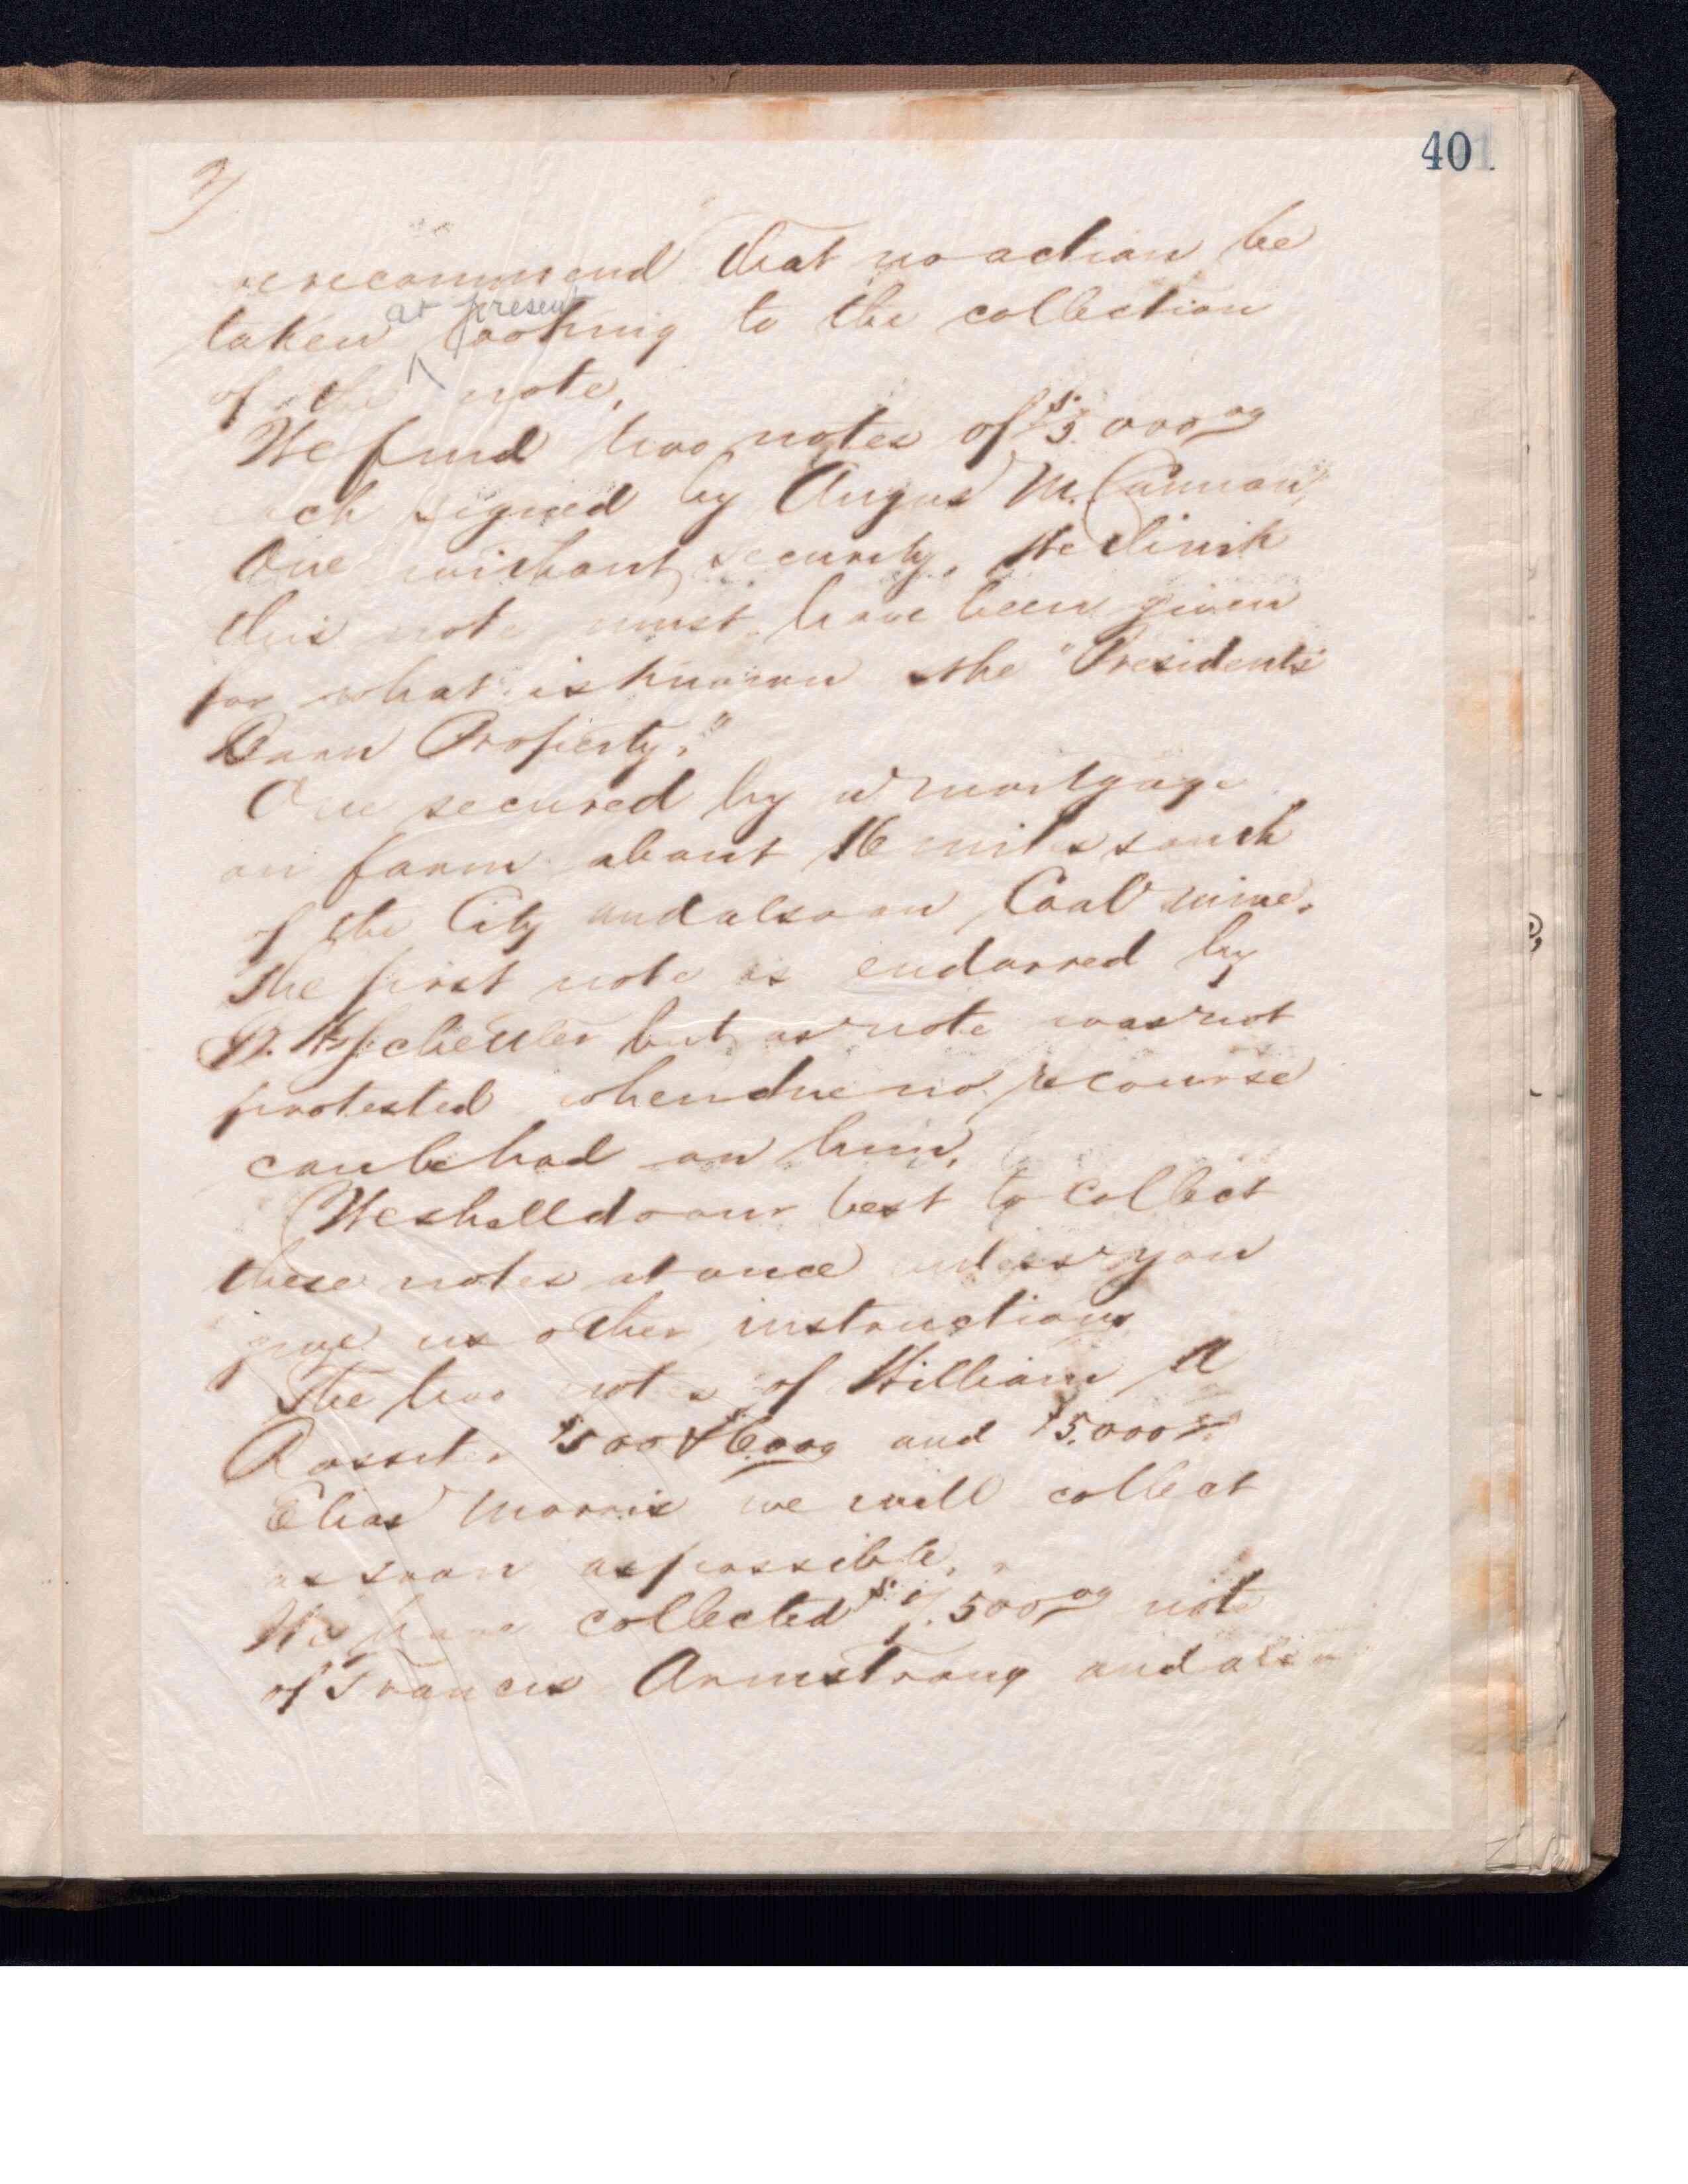 401
2/
we recommend that no action be
at present
taken looking to the collection
of the note.
We find two notes of $5.000 00
each signed by Angus M. Cannon,
One without security. We think
this note must have been given
for what is known as the "Presidents
Barn Property."
One secured by a mortgage
on farm about 16 miles south
of the City and also on Coal mine.
The first note is endorsed by
but as note was not
protested when due no recourse
can be had on him.
We shall do our best to collect
these notes at once unless you
give us other instructions
The two notes of William A
Rossiter $500 & $6.000 and $5.000
Elias Morris we will collect
as soon as possible.
We have collected $ 7.500 00 note
of Francis Armstrong and also